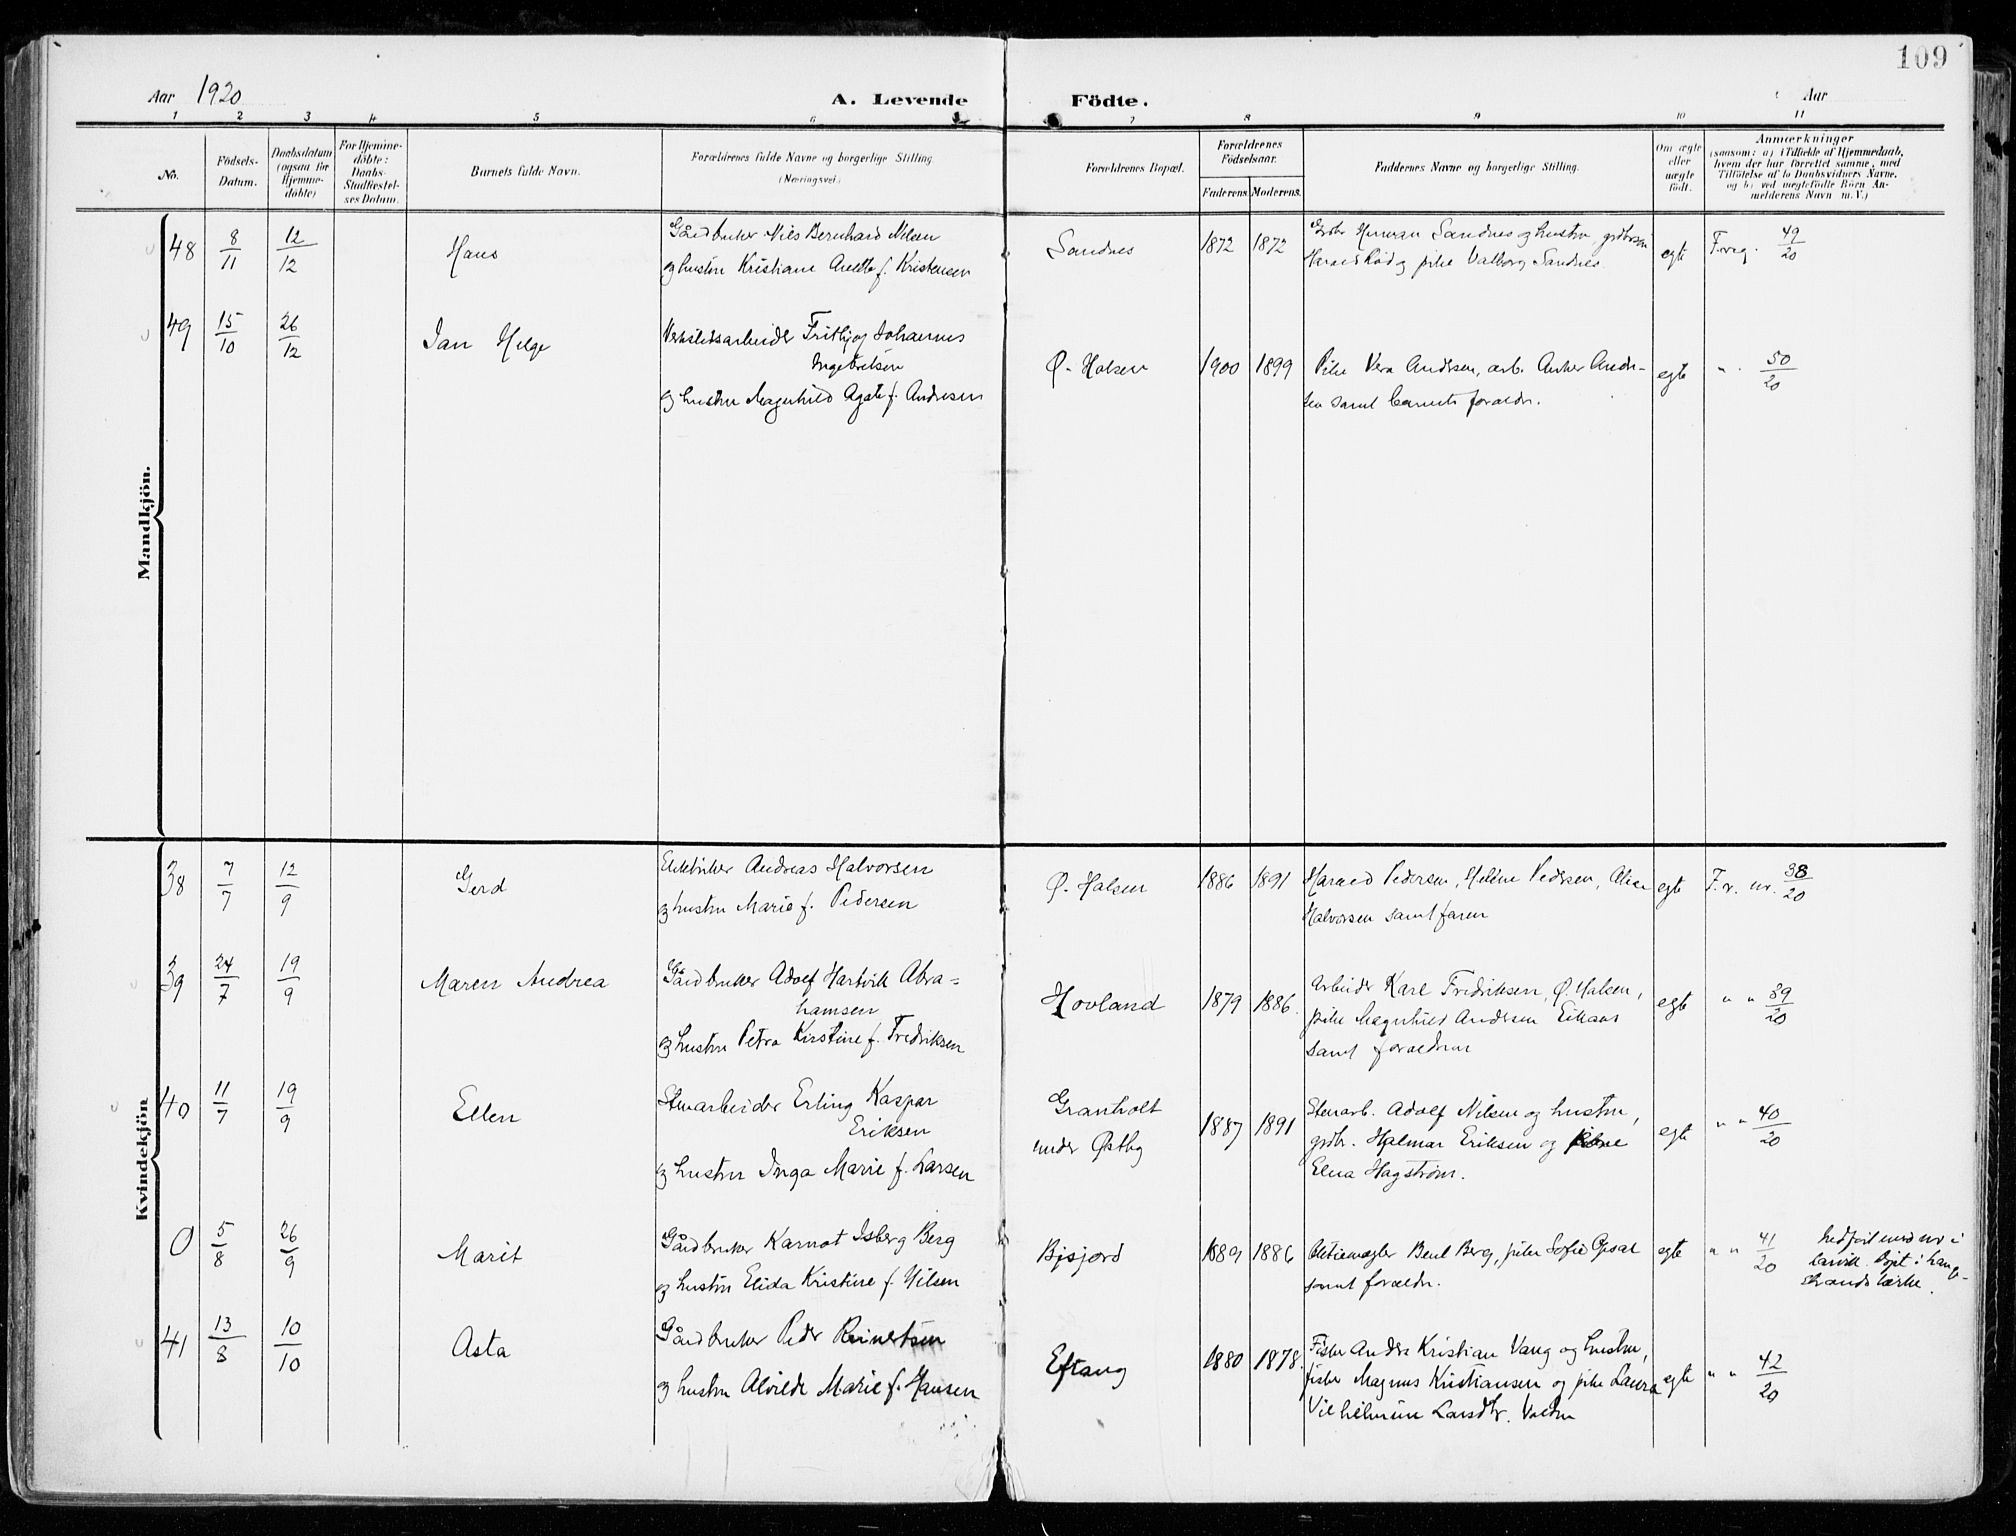 109
Aar 1920
A. Levende Födte.
Aar
1 2 3 4 5 6 7 8 9 10 11
No.
Födsels-Datum.
Daabsdatum (ogsaa for Hjemmedöbte)
For Hjemmedöbte: Daabs-Stadfestelses Datum.
Barnets fulde Navn.
Forældrenes fulde Navne og borgerlige Stilling. (Næringsvei.)
Forældrenes Bopæl.
Forældrenes Födselsaar.
Faderens. Moderens.
Faddernes Navne og borgerlige Stilling.
Om ægte eller uægte födt.
Anmærkninger
(saasom: a) i Tilfælde af Hjemmedaab,
hvem der har forrettet samme, med
Tilföielse af to Daabsvidners Navne.
og b) ved uægtefödte Börn An-
melderens Navn m. V.)
Mandkjön.
48 8/11 12/12 Hans
Gårdbruker Nils Bernhard Nilsen
og hustru Kristiane Anette f. Kristensen
Sandnes 1872 1872
Grdbr Herman Sandnes og hustru, grdbrsøn
Harald Rød og pike Valborg Sandnes.
egte Foreg. 49/20
49 15/10 26/12 Jan Helge
Verkstedsarbeider Frithjof Johannes
Ingebretsen
og hustru Magnhild Agate f. Andresen
Ø. Halsen 1900 1899
Pike Vera Andersen, arb. Anker Andr-
sen samt barnets forældr.
egte " 50/20
Kvindekjön
38 7/7 12/9 Gerd
Elektriker Andreas Halvorsen
og hustru Marie f. Pedersen
Ø. Halsen 1886 1891
Harald Pedersen, Helene Pedersen, Alice
Halvorsen samt faren
egte F. r. nr. 38/20
39 24/7 19/9 Maren Andrea
Gårdbruker Adolf Hartvik Abra-
hamsen
og hustru Petra Kirstine f. Fredriksen
Hovland 1879 1886.
Arbeider Karl Fredriksen, Ø. Halsen,
pike Magnhild Andersen Eikaas
samt forældrene
egte " " 39/20
40 11/7 19/9 Ellen
Stenarbeider Erling Kaspar
Eriksen
og hustru Inga Marie f. Larsen
Granholt
under Østby
1887 1891
Stenarb. Adolf Nilsen og hustru,
grdbr. Hjalmar Eriksen og pike
Elna Hagstrøm.
egte " " 40/20
0 5/8 26/9 Marit
Gårdbruker Karnot Isberg Berg
og hustru Elida Kristine f. Nilsen
Bjsjord 1889 1886
Aktiemegler Bent Berg, pike Sofie Opsal
samt foræld.
egte " " 41/20
nedført under nr i
Larvik. Døpt i Lang-
strands kirke.
41 13/8 10/10 Asta
Gårdbruker Peder Reinertsen
og hustru Alvilde Marie f. Hansen
Eftang 1880 1878.
Fisker Anders Kristian Vang og hustru,
fisker Magnus Kristiansen og pike Laura
Vilhelmine Larsdtr. Valdm
egte " " 42/20